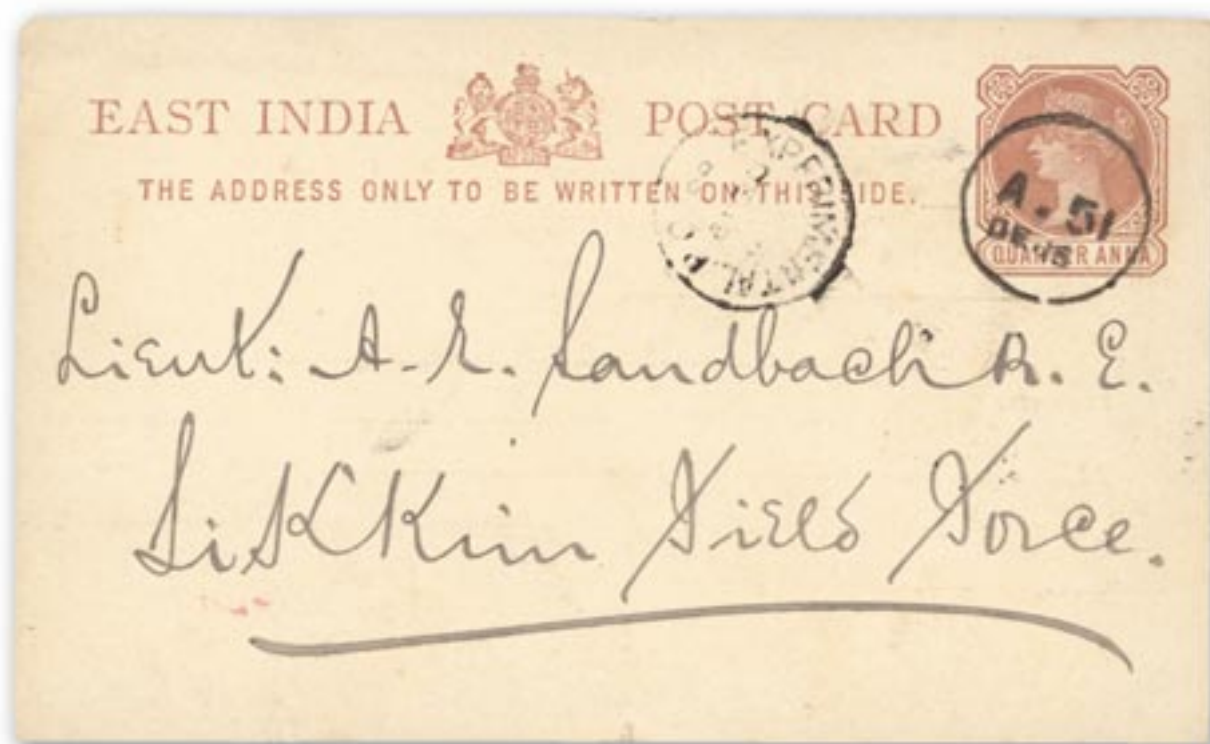 EAST INDIA POST CARD
THE ADDRESS ONLY TO BE WRITTEN ON THIS SIDE.
EXPERIMENTAL P.O.
A. 51
DE. 15
QUARTER ANNA
Lieut: A. E. Sandbach R. E.
Sikkim Field Force.